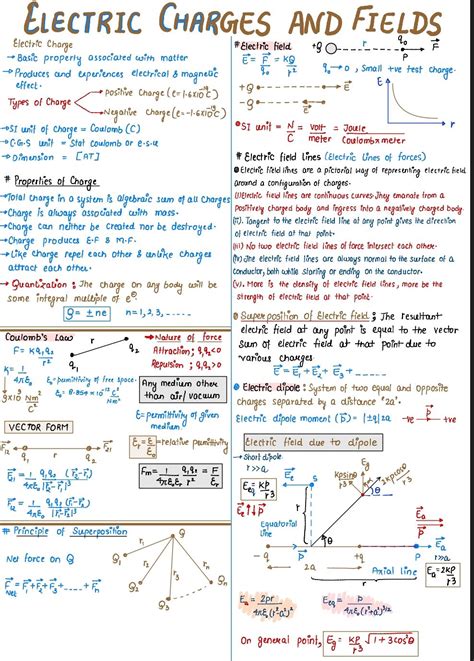 ELECTRIC CHARGES AND FIELDS
Electric Charge
→ Basic property associated with matter
→ Produces and experiences electrical & magnetic effect.
Types of Charge
Positive Charge (e=1.6×10⁻¹⁹C)
Negative Charge (e=-1.6×10⁻¹⁹C)
→ SI unit of Charge = Coulomb (C)
→ C.G.S unit = Stat coulomb or e.s.u
→ Dimension = [AT]
# Properties of Charge
→ Total charge in a system is algebraic sum of all Charges
→ Charge is always associated with mass.
→ Charge can neither be created nor be destroyed.
→ Charge produces E.F & M.F.
→ Like charge repel each other & unlike charges
attract each other.
→ Quantization: The charge on any body will be
some integral multiple of e⁻
Q = ± ne n=1,2,3,-----
Coulomb's Law
F = Kq₁q₂/r²
K = 1/4πε₀
9×10⁹ Nm²/C²
ε₀=permittivity of free space
r
q₁ q₂
→ Nature of force
Attraction; q₁q₂<0
Repulsion; q₁q₂>0
Any medium other
than air/vacuum
VECTOR FORM
ε=permittivity of given
medium
εr = ε/ε₀ =relative permittivity
Fm = 1/4πε₀εr q₁q₂/r² = F/εr
# Principle of Superposition
Net force on Q
F⃗net = F⃗₁+F⃗₂+F⃗₃+-----+F⃗n
Q
Q₁
Q₂
Q₃
Qn
r₁
r₂
r₃
rn
# Electric field
E⃗ = F⃗/q₀ = KQ/r²
+Q r q₀ P F⃗
q₀→0, Small +ve test charge.
+Q
-Q
E⃗
E
r
SI unit = N/C = Volt/meter = Joule/Coulomb×meter
# Electric field lines (Electric lines of forces)
Electric field lines are a pictorial way of representing electric field
around a configuration of charges.
(I) Electric field lines are continuous curves. They emanate from a
Positively charged body and ingress into a negatively charged body.
(II). Tangent to the electric field line at any point gives the direction
of electric field at that point.
(III) No two electric field lines of force intersect each other.
(IV) The electric field lines are always normal to the surface of a
conductor, both while starting or ending on the conductor.
(V). More is the density of electric field lines, more be the
strength of electric field at that point.
Superposition of Electric field; The resultant
electric field at any point is equal to the vector
sum of electric field at that point due to
various charges
Electric dipole: System of two equal and opposite
charges separated by a distance '2a'.
Electric dipole moment (p⃗) = |±q|2a
-ve +ve
P⃗
Electric field due to dipole
→ Short dipole
r>>a
Eeq = KP/r³
E⃗↑↓p⃗
Equatorial
line
S
r
θ
Kpsinθ/r³
2Kpcosθ/r³
-q
2a
+q
P
Axial line
E⃗a
Ea = 2KP/r³
Ea = 2pr/4πε₀(r²-a²)²
Eeq = P/4πε₀(r²+a²)^3/2
On general point, Eg = KP/r³ √1+3cos²θ